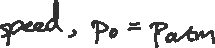 speed, P₀ = Patm